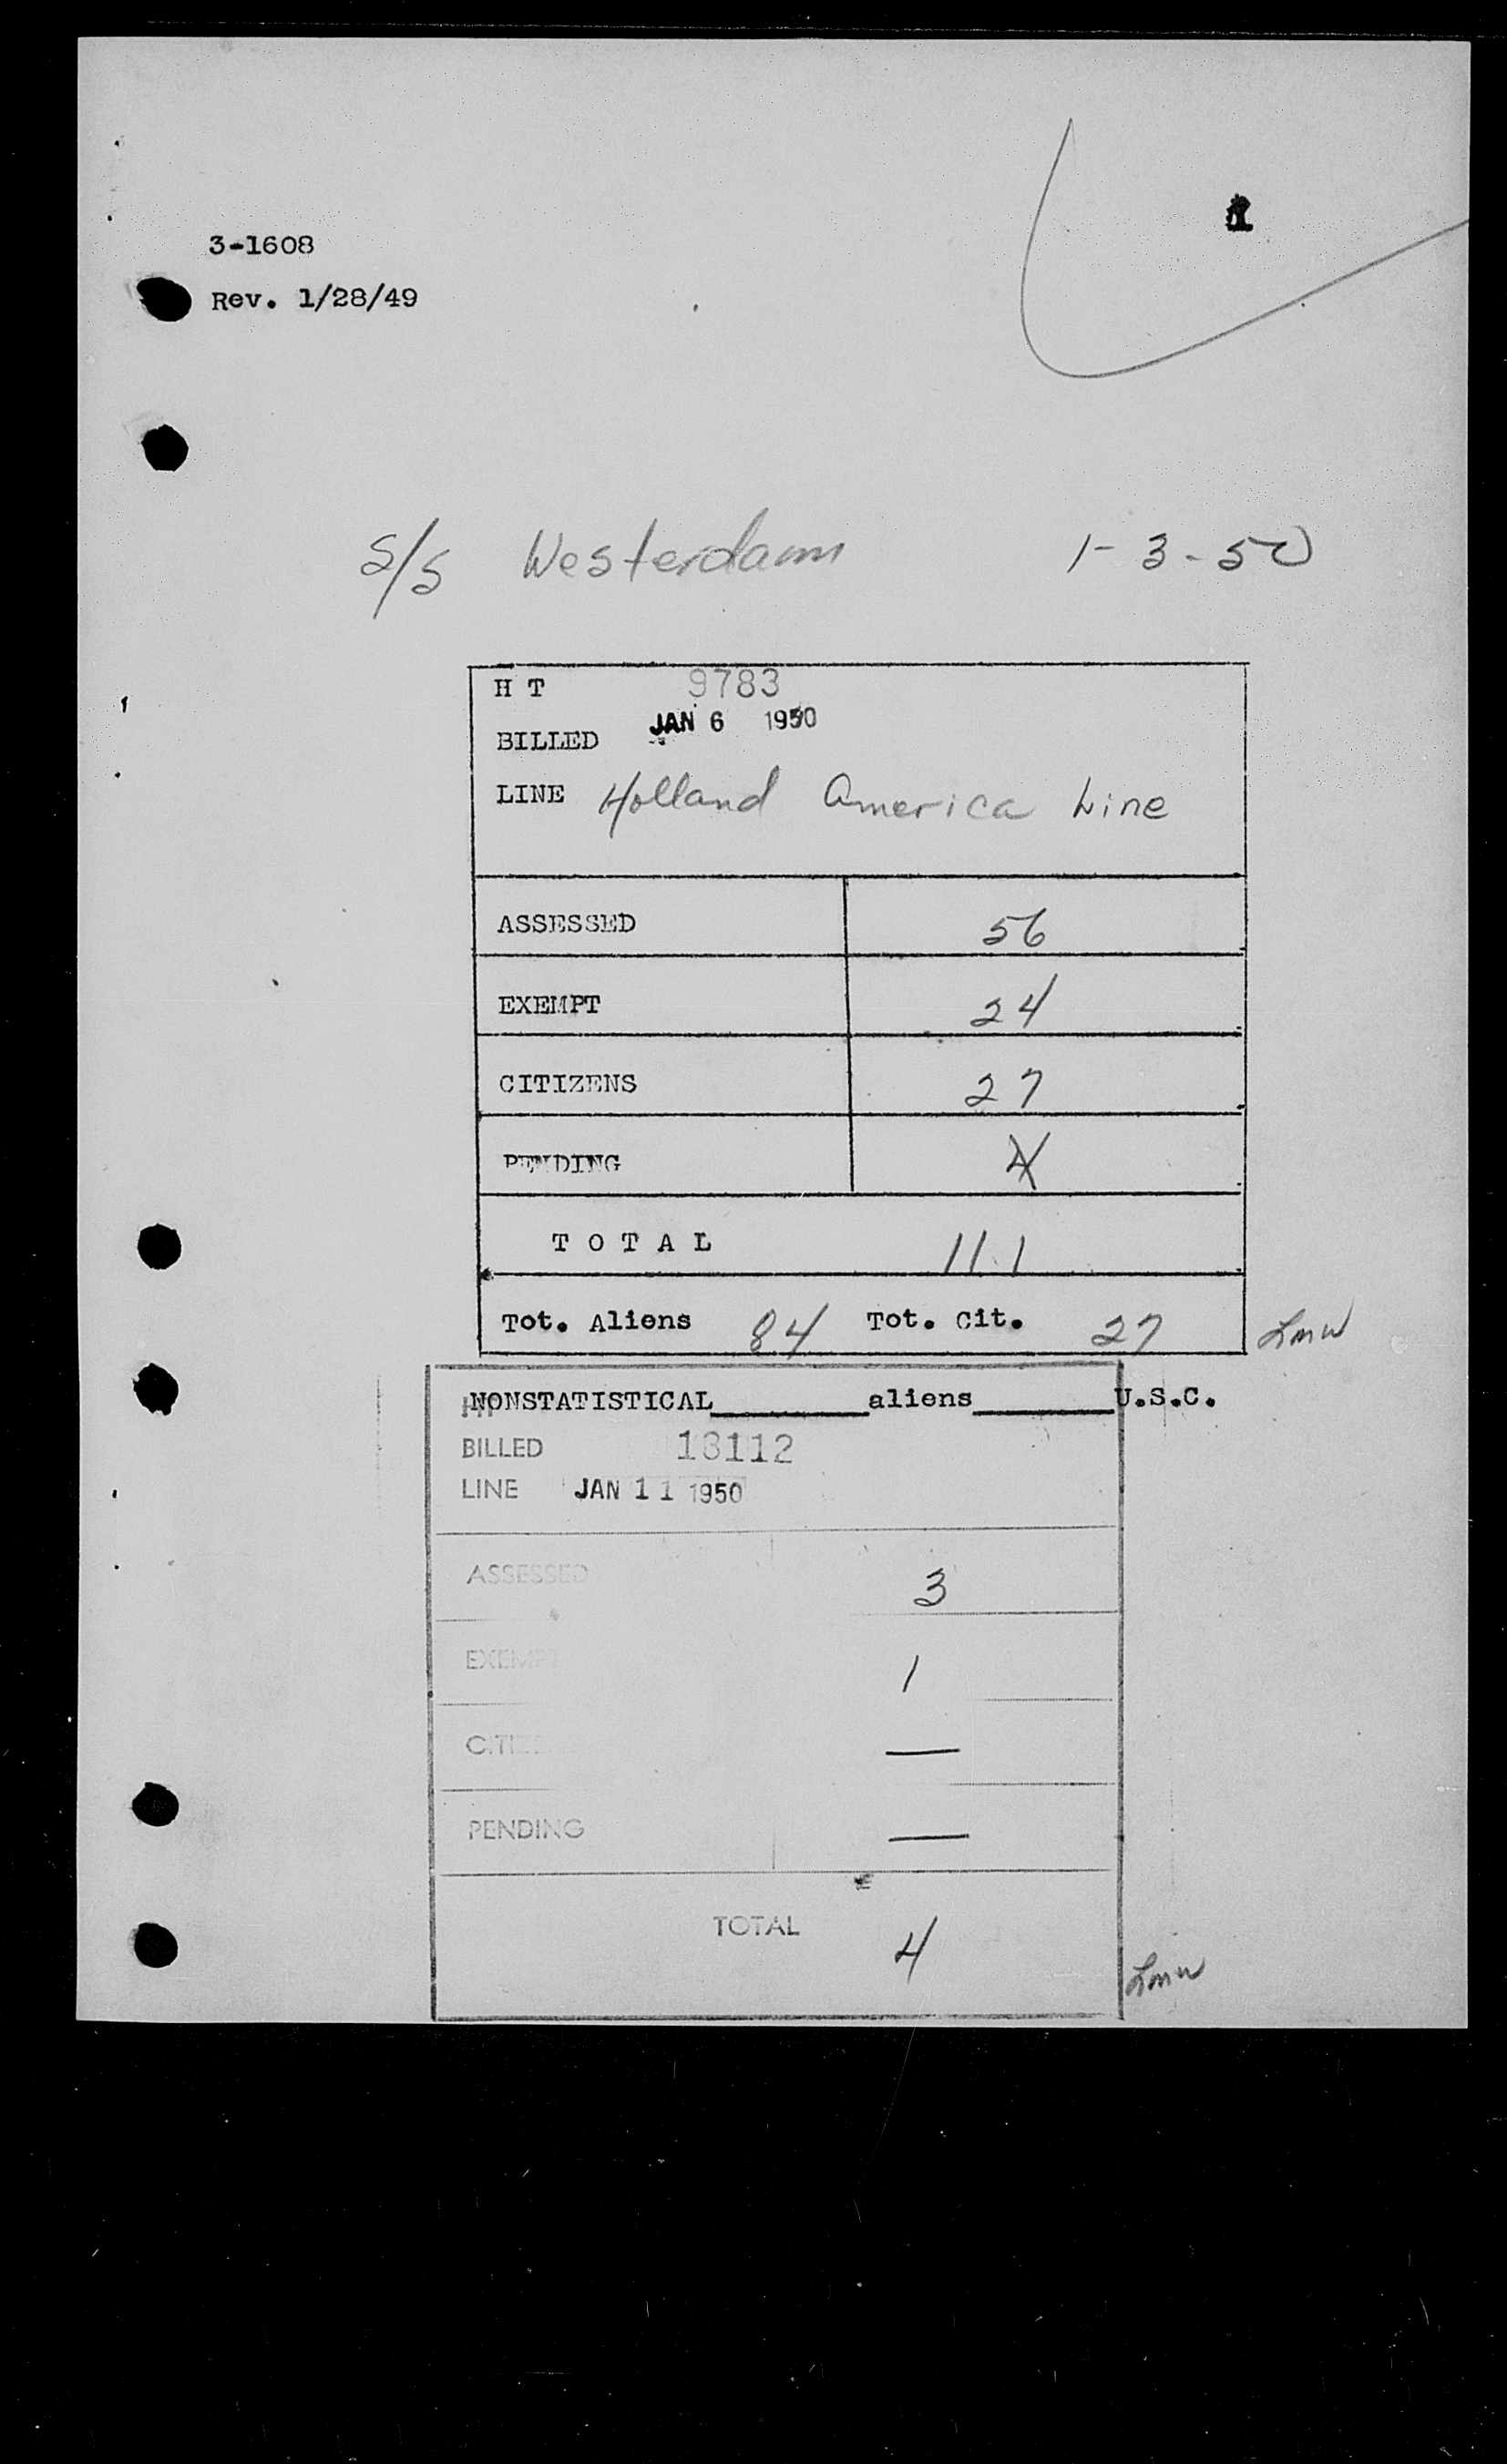 3-1608
Rev. 1/28/49
S/S Westerdam 1-3-50
H T 9783
BILLED JAN 6 1950
LINE Holland America Line
ASSESSED 56
EXEMPT 24
CITIZENS 27
PENDING 4
T O T A L 111
Tot. Aliens 84 Tot. Cit. 27 Lmw
NONSTATISTICAL________aliens_______U.S.C.
BILLED 13112
LINE JAN 11 1950
ASSESSED 3
EXEMPT 1
—
PENDING —
TOTAL 4
Lmw